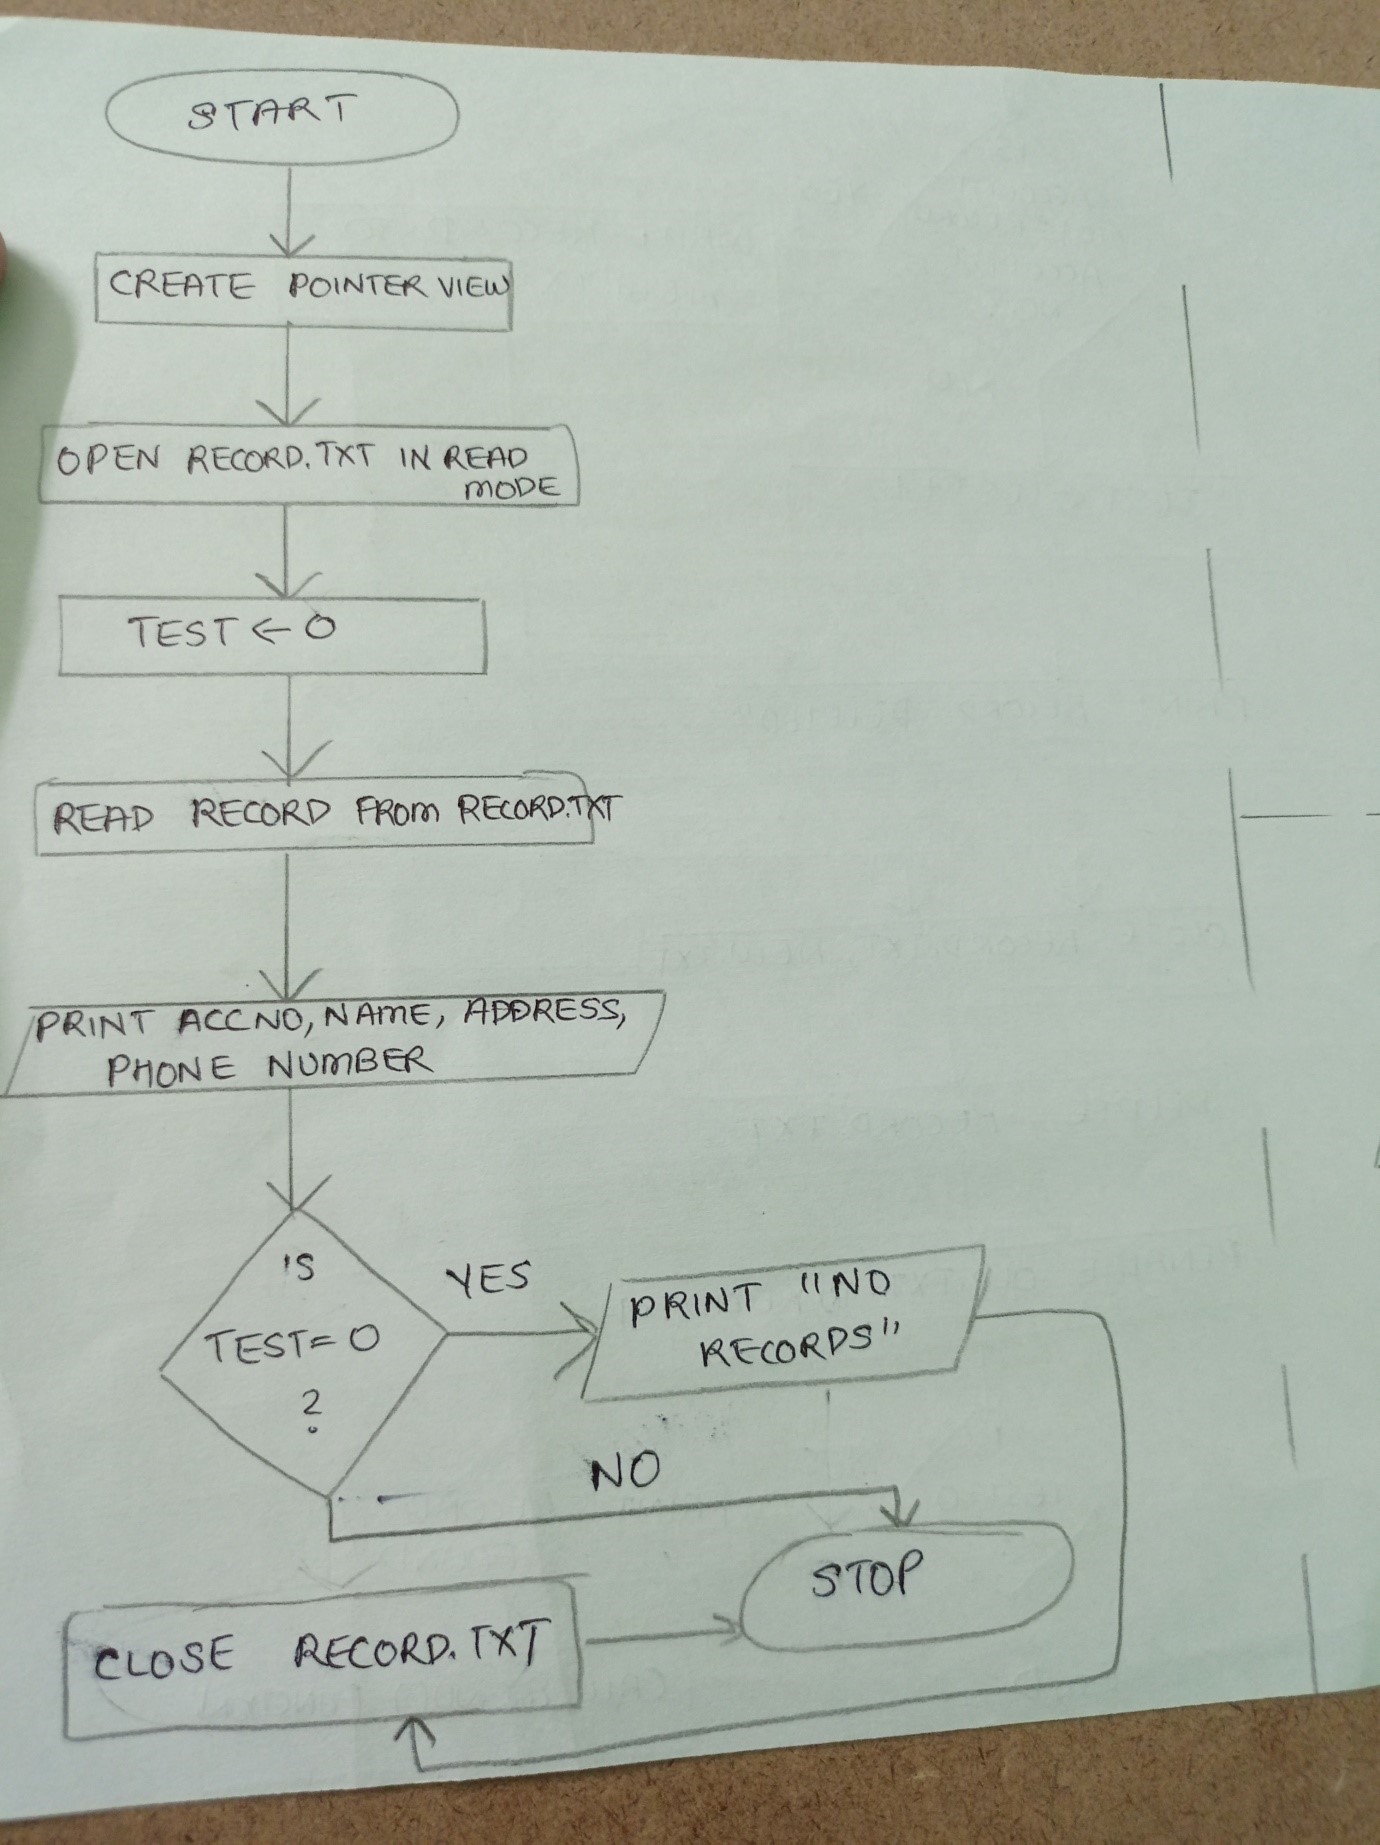 START
CREATE POINTER VIEW
OPEN RECORD.TXT IN READ
MODE
TEST ← 0
READ RECORD FROM RECORD.TXT
PRINT ACCNO, NAME, ADDRESS,
PHONE NUMBER
IS
TEST = 0
?
YES
PRINT "NO
RECORDS"
NO
STOP
CLOSE RECORD.TXT